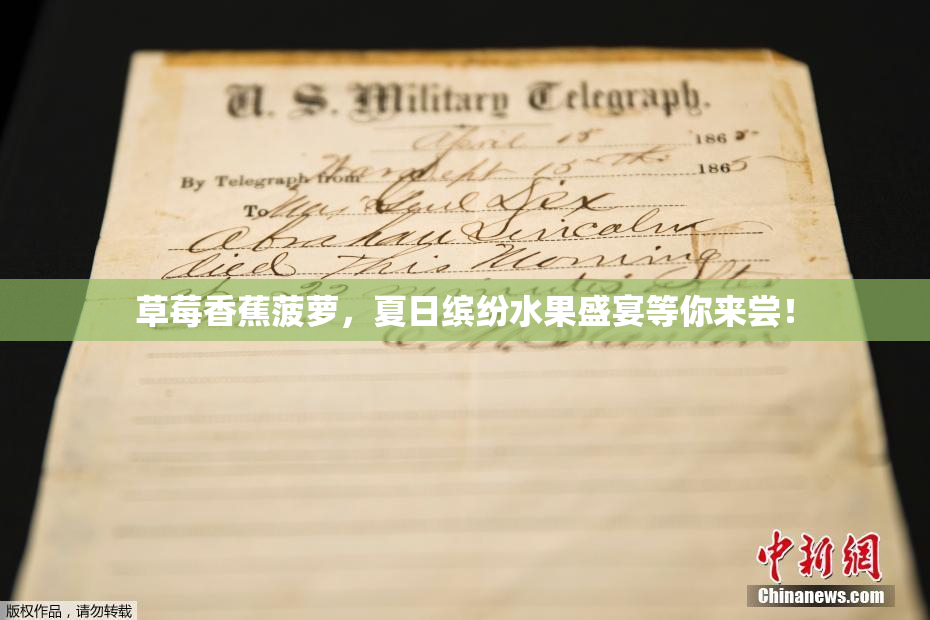 U. S. Military Telegraph.
April 15 1865
By Telegraph from War Dept 15th 1865
To Maj Genl Dix
Abraham Lincoln
died This Morning
at 22 minutes after
草莓香蕉菠萝，夏日缤纷水果盛宴等你来尝！
E. M. Stanton
中新网
Chinanews.com
版权作品，请勿转载